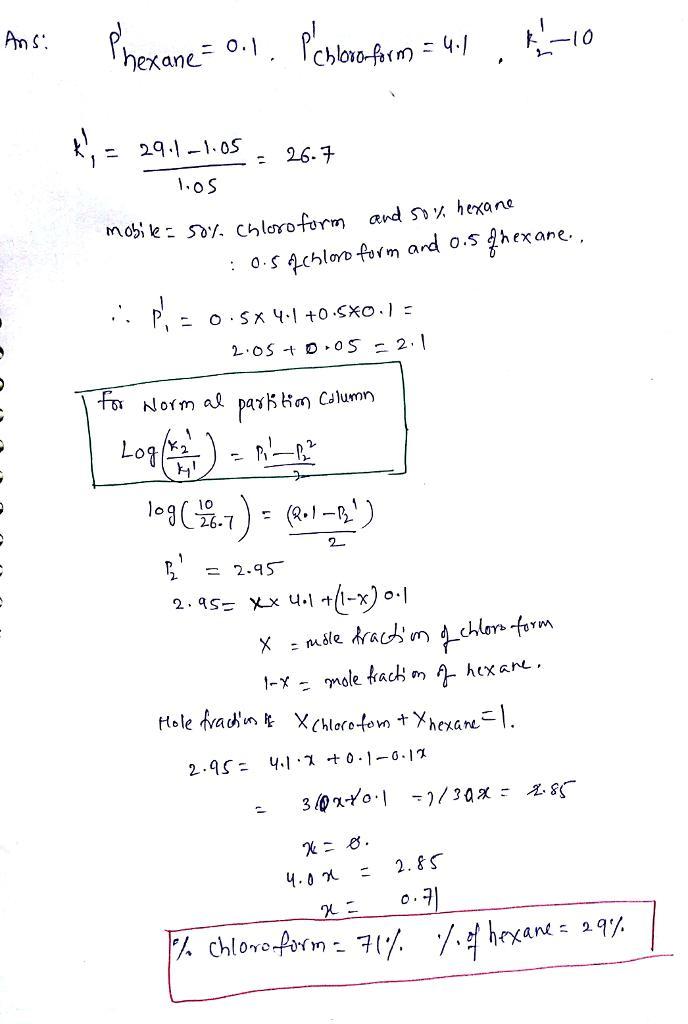 Ans: P'hexane = 0.1. P'chloroform = 4.1 , k'2 – 10
k'1 = 29.1 – 1.05 / 1.05 = 26.7
mobile = 50% chloroform and 50% hexane
: 0.5 of chloroform and 0.5 of hexane.,
∴ P'1 = 0.5 x 4.1 + 0.5x0.1 =
2.05 + 0.05 = 2.1
for Normal partition Column
Log (k2' / k1') = P1' – P2² / 2
log (10 / 26.7) = (2.1 – P2') / 2
P2' = 2.95
2.95 = x x 4.1 + (1-x) 0.1
x = mole fraction of chloroform
1-x = mole fraction of hexane.
Mole fraction is Xchloroform + Xhexane = 1.
2.95 = 4.1.x + 0.1 – 0.1x
= x + 0.1 = 2.85
x = 0.
4.0 x = 2.85
x = 0.71
% chloroform = 71% % of hexane = 29%